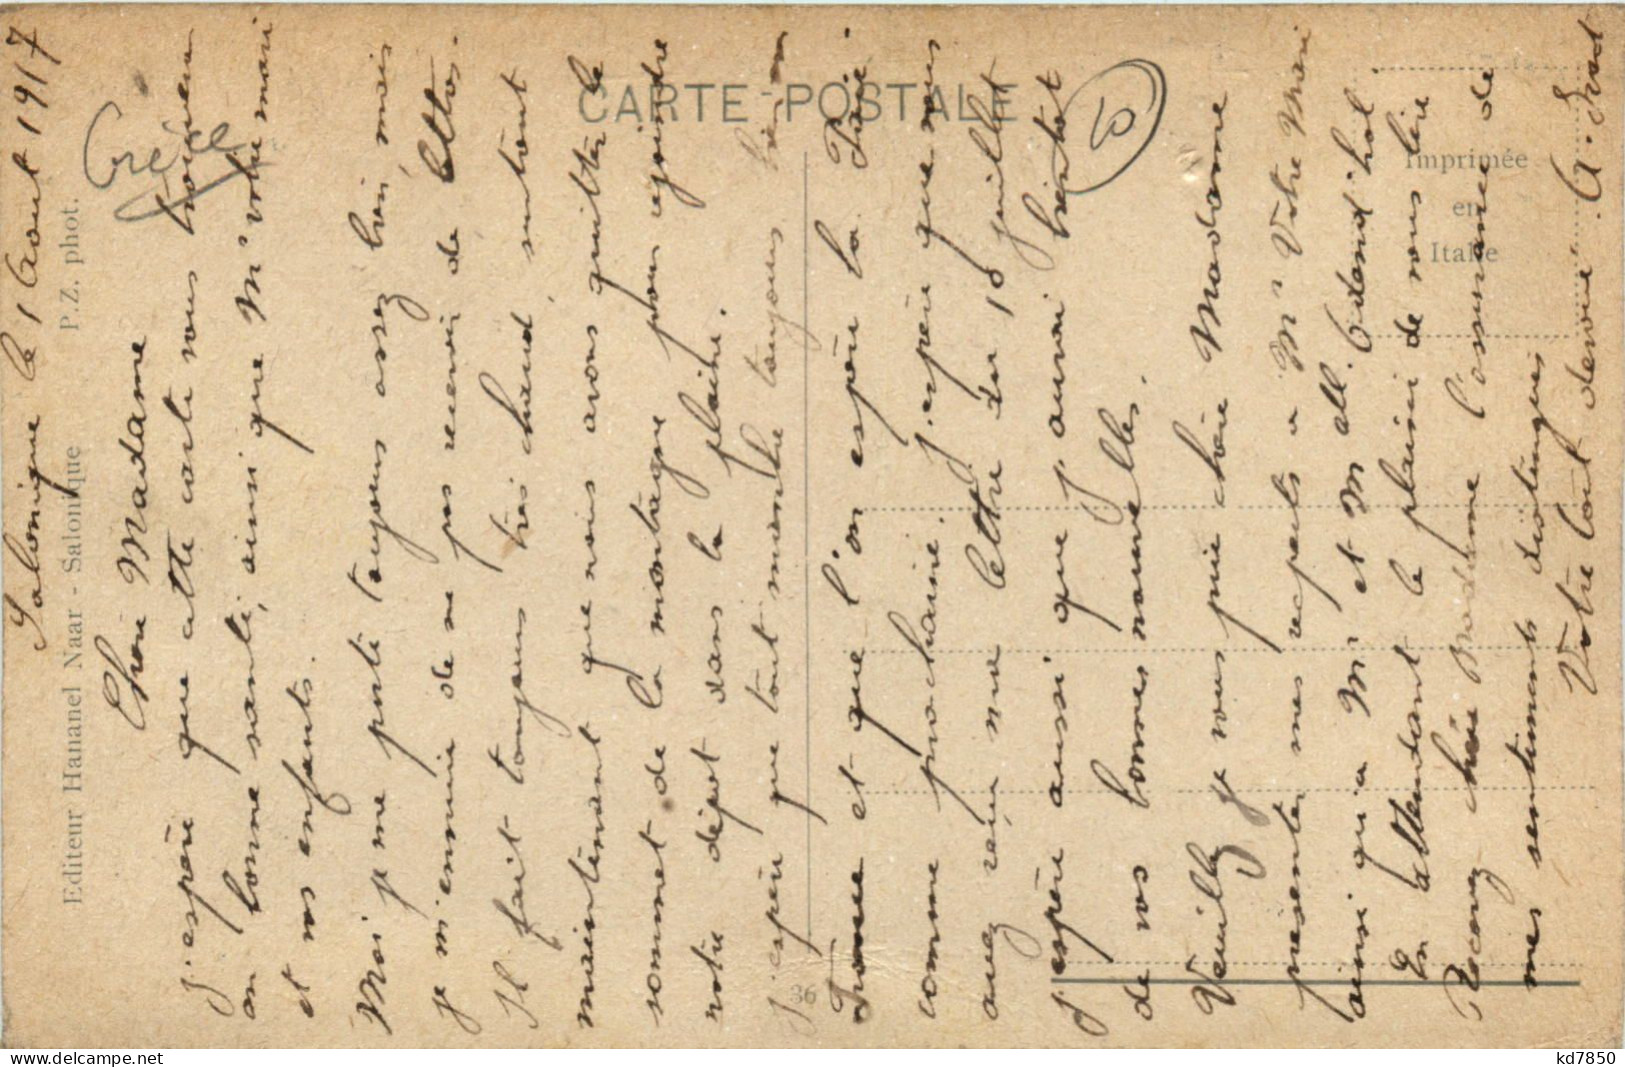 Salonique le 1 Aout 1917
Chère Madame
J'espère que cette carte vous trouvera
en bonne santé, ainsi que Mr votre mari
et vos enfants.
Moi je me porte toujours assez bien, mais
je m'ennuie de ne pas recevoir de lettres.
Il fait toujours très chaud, surtout
maintenant que nous avons quitter le
sommet de la montagne pour rejoindre
notre dépot dans la plaine.
J'espère que tout marche toujours bien en
France et que l'on espère la Paix
comme prochaine. J'espère que vous
avez reçu ma lettre du 10 juillet
J'espère aussi que j'aurai bientot
de vos bonnes nouvelles.
Veuillez je vous prie chère Madame
presenter mes respects a Mr Votre Mari
ainsi qu'a Mr et M all.
En attendant le plaisir de vous lire
Recevez chère Madame l'assurance de
mes sentiments distingués
Votre tout dévoué. A.
Grèce
CARTE POSTALE
5
Imprimée
en
Italie
Editeur Hananel Naar - Salonique P.Z. phot.
36
www.delcampe.net
kd7850